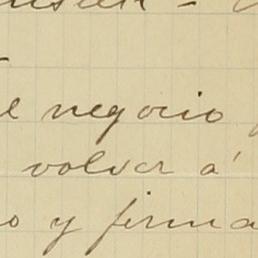 negocio
volver á
o y firma